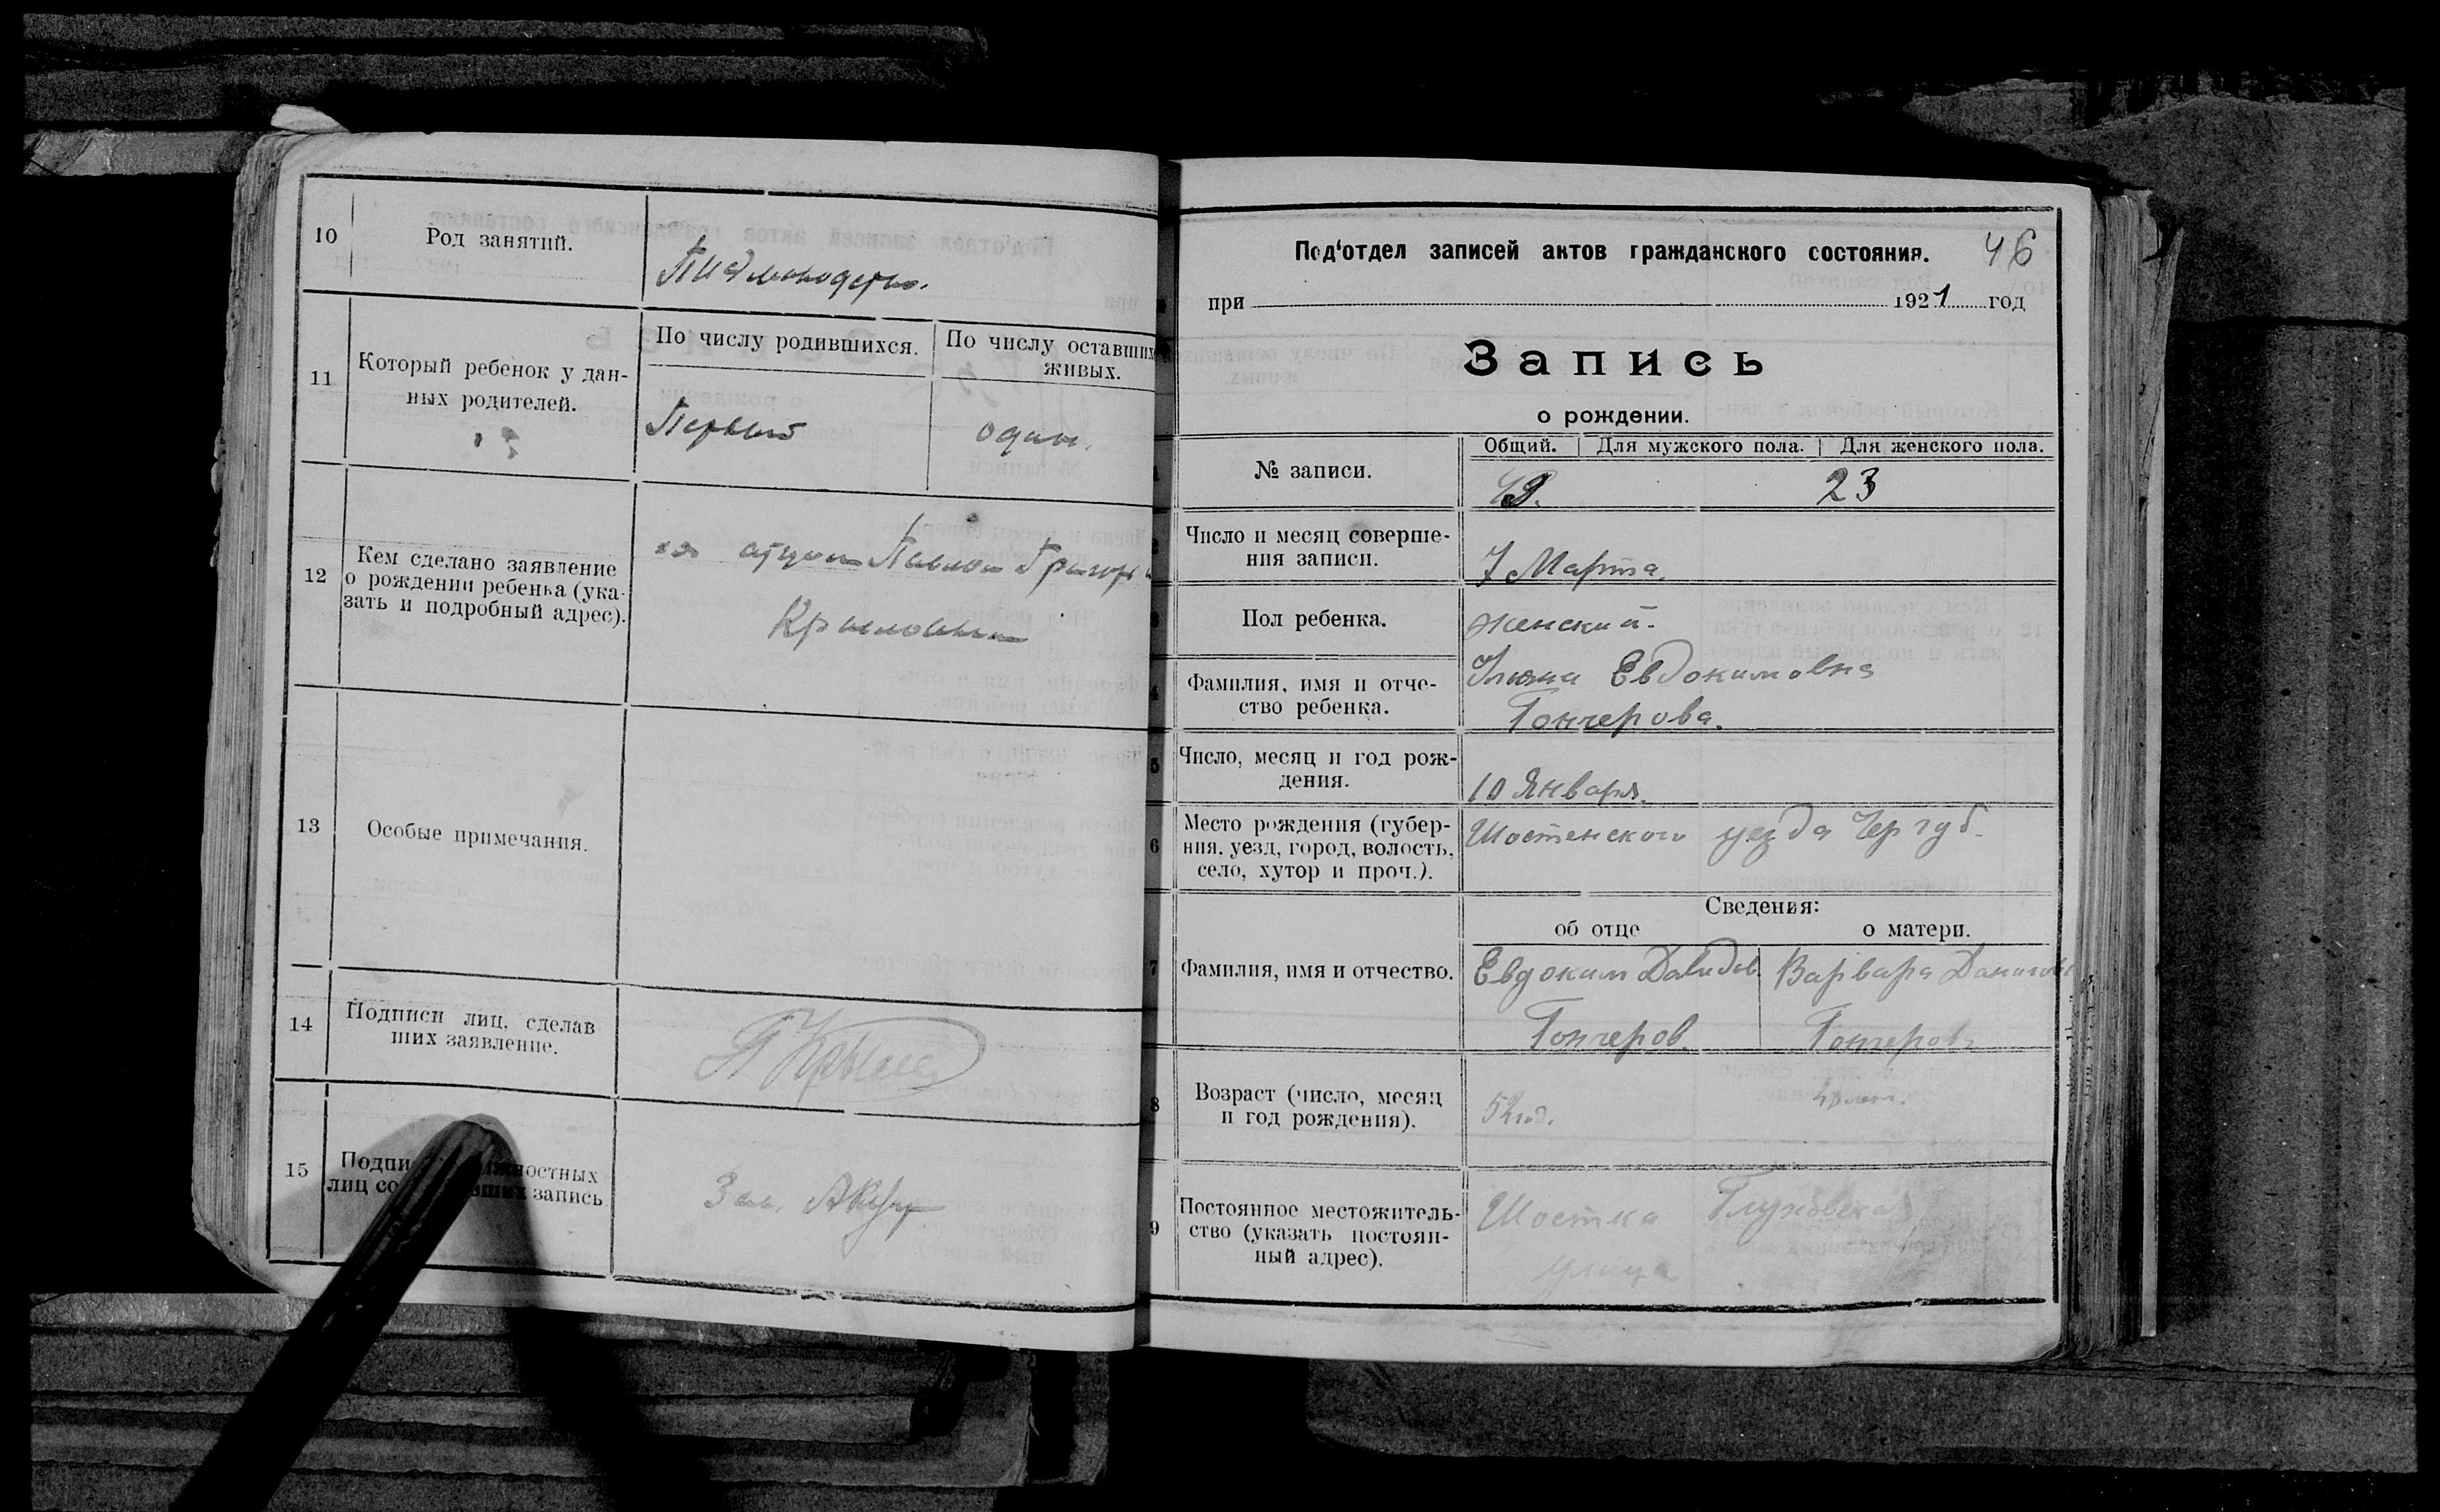 10
Род занятий.
11
Который ребенок у дан-
ных родителей.
По числу родившихся.
По числу оставших
живых.
Первый
один.
12
Кем сделано заявление
о рождении ребенка (ука-
зать и подробный адрес).
отцом Павлом Григорь
Крыловым
13
Особые примечания.
14
Подписи лиц, сделав
ших заявление.
15
Подпи ностных
лиц со вших запись
Зав.
Под'отдел записей актов гражданского состояния.
46
при 1921 год
Запись
о рождении.
1
№ записи.
Общий. Для мужского пола. Для женского пола.
49. 23
2
Число и месяц соверше-
ния записи.
7 Марта.
3
Пол ребенка.
женский.
4
Фамилия, имя и отче-
ство ребенка.
Евдокимовна
Гончерова.
5
Число, месяц и год рож-
дения.
10 Января.
6
Место рождения (губер-
ния, уезд, город, волость,
село, хутор и проч.).
Шостенского уезда Чер губ.
Сведения:
об отце
о матери.
7
Фамилия, имя и отчество.
Евдоким Давидов
Гончеров
Варвара
Гончерова
8
Возраст (число, месяц
и год рождения).
52 год.
9
Постоянное местожитель-
ство (указать постоян-
ный адрес).
Шостка Глуховская
улица